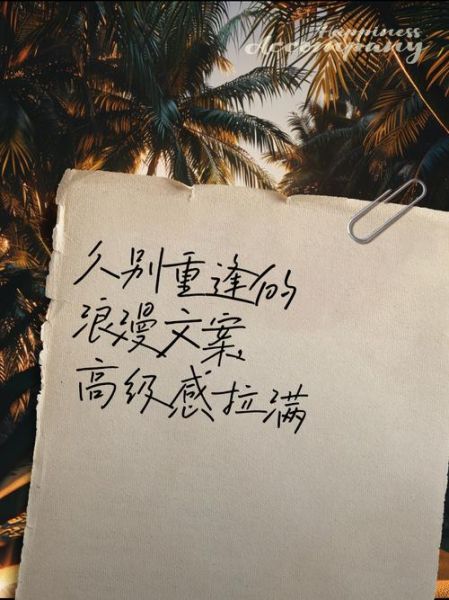 Happiness
accompany
久别重逢的
浪漫文案
高级感拉满